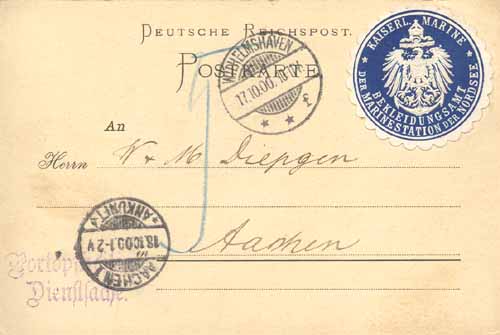 DEUTSCHE REICHSPOST.
POSTKARTE
WILHELMSHAVEN
17.10.00.
* * f
KAISERL. MARINE
BEKLEIDUNGSAMT
DER MARINESTATION DER NORDSEE
An
Herrn W & M Diepgen
Aachen
* ANKUNFT *
18.10.00.1-2V
AACHEN 1
Dienstsache.